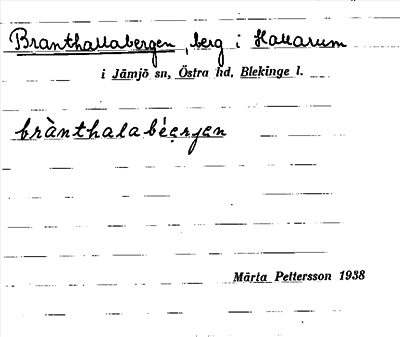 Branthallabergen, berg i Hallarum
i Jämjö sn, Östra hd, Blekinge l.
brànthalabéęrjen
Märta Pettersson 1938